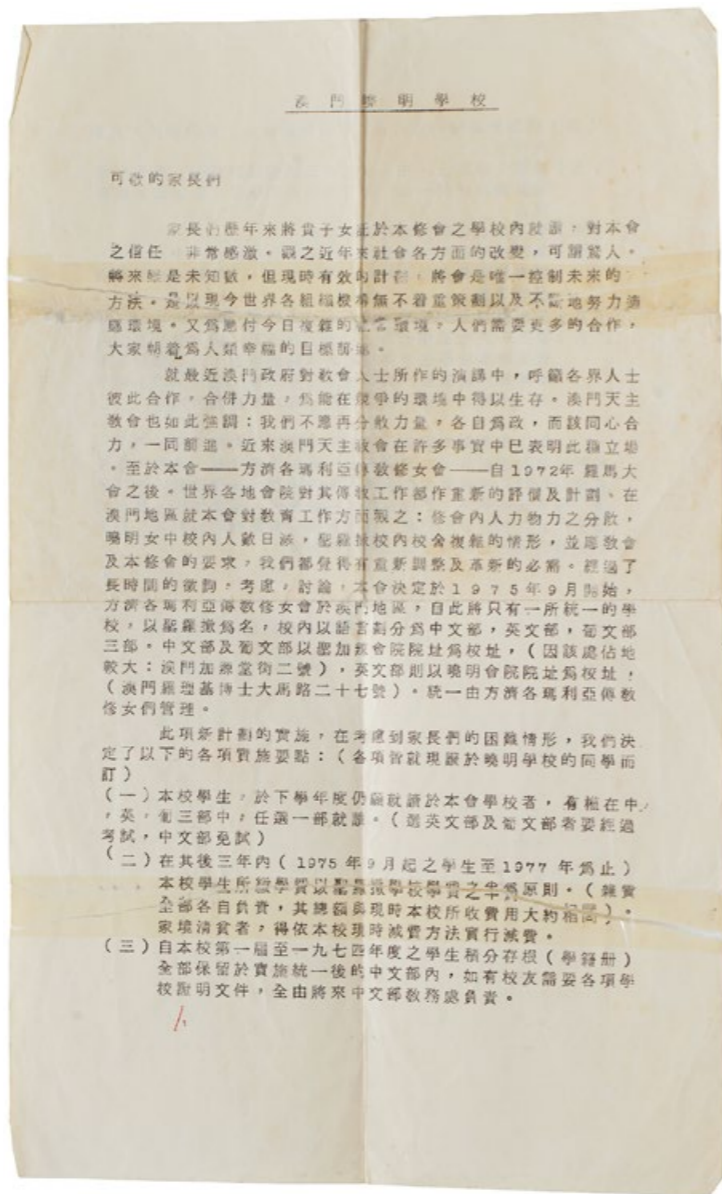 澳門曉明學校
可敬的家長們
家長們歷年來將貴子女託於本修會之學校內就讀，對本會
之信任 非常感激。觀之近年來社會各方面的改變，可謂驚人。
將來總是未知數，但現時有效的計劃，將會是唯一控制未來的
方法。是以現今世界各組織機構無不着重策劃以及不斷地努力適
應環境。又為應付今日複雜的社會環境，人們需要更多的合作，
大家朝着為人類幸福的目標前進。
就最近澳門政府對教會人士所作的演講中，呼籲各界人士
彼此合作，合併力量，為能在競爭的環境中得以生存。澳門天主
教會也如此強調：我們不應再分散力量，各自為政，而該同心合
力，一同前進。近來澳門天主教會在許多事實中已表明此種立場
。至於本會——方濟各瑪利亞傳教修女會——自1972年 羅馬大
會之後。世界各地會院對其傳教工作都作重新的評價及計劃。在
澳門地區就本會對教育工作方面觀之：修會內人力物力之分散，
曉明女中校內人數日添，聖羅撒校內校舍複雜的情形，並應教會
及本修會的要求，我們都覺得有重新調整及革新的必需。經過了
長時間的徵詢，考慮，討論，本會決定於1975年9月開始，
方濟各瑪利亞傳教修女會於澳門地區，自此將只有一所統一的學
校，以聖羅撒為名，校內以語言劃分為中文部，英文部，葡文部
三部。中文部及葡文部以聖加辣會院院址為校址，（因該處佔地
較大：澳門加辣堂街二號），英文部則以曉明會院院址為校址，
（澳門羅理基博士大馬路二十七號）。統一由方濟各瑪利亞傳教
修女們管理。
此項新計劃的實施，在考慮到家長們的困難情形，我們決
定了以下的各項實施要點：（各項皆就現讀於曉明學校的同學而
訂）
（一）本校學生，於下學年度仍繼就讀於本會學校者，有權在中
，英，葡三部中，任選一部就讀。（選英文部及葡文部者要經過
考試，中文部免試）
（二）在其後三年內（1975年9月起之學生至1977年為止）
本校學生所繳學費以聖羅撒學校學費之半為原則。（雜費
全部各自負責，其總額與現時本校所收費用大約相同）。
家境清貧者，得依本校現時減費方法實行減費。
（三）自本校第一屆至一九七四年度之學生積分存根（學籍冊）
全部保留於實施統一後的中文部內，如有校友需要各項學
校證明文件，全由將來中文部教務處負責。